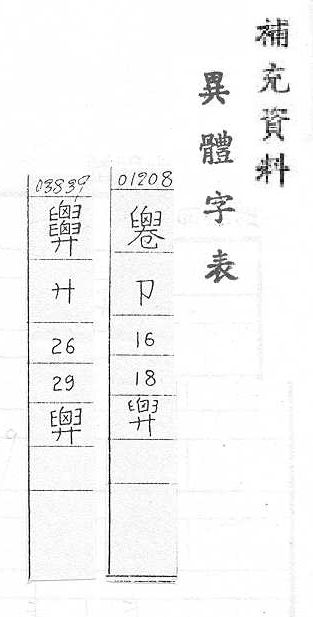 補充資料
異體字表
01208
卩
16
18
03839
廾
26
29